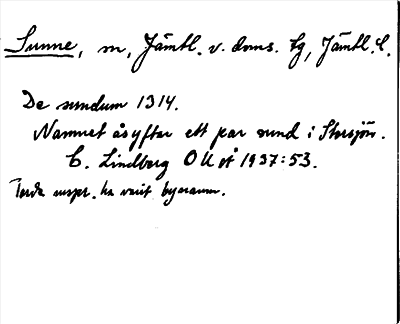 Sunne, sn, Jämtl. v. doms. tg, Jämtl. l.
De sundum 1314.
Namnet åsyftar ett par sund i Storsjön.
C. Lindberg OUÅ 1937:53.
Torde urspr. ha varit bynamn.